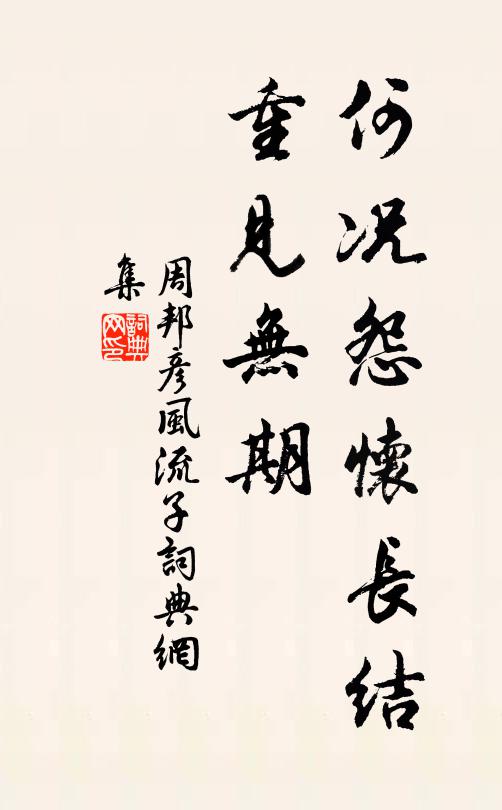 何况怨懷長結
重見無期
周邦彥風流子詞典網
集
詞典
网印